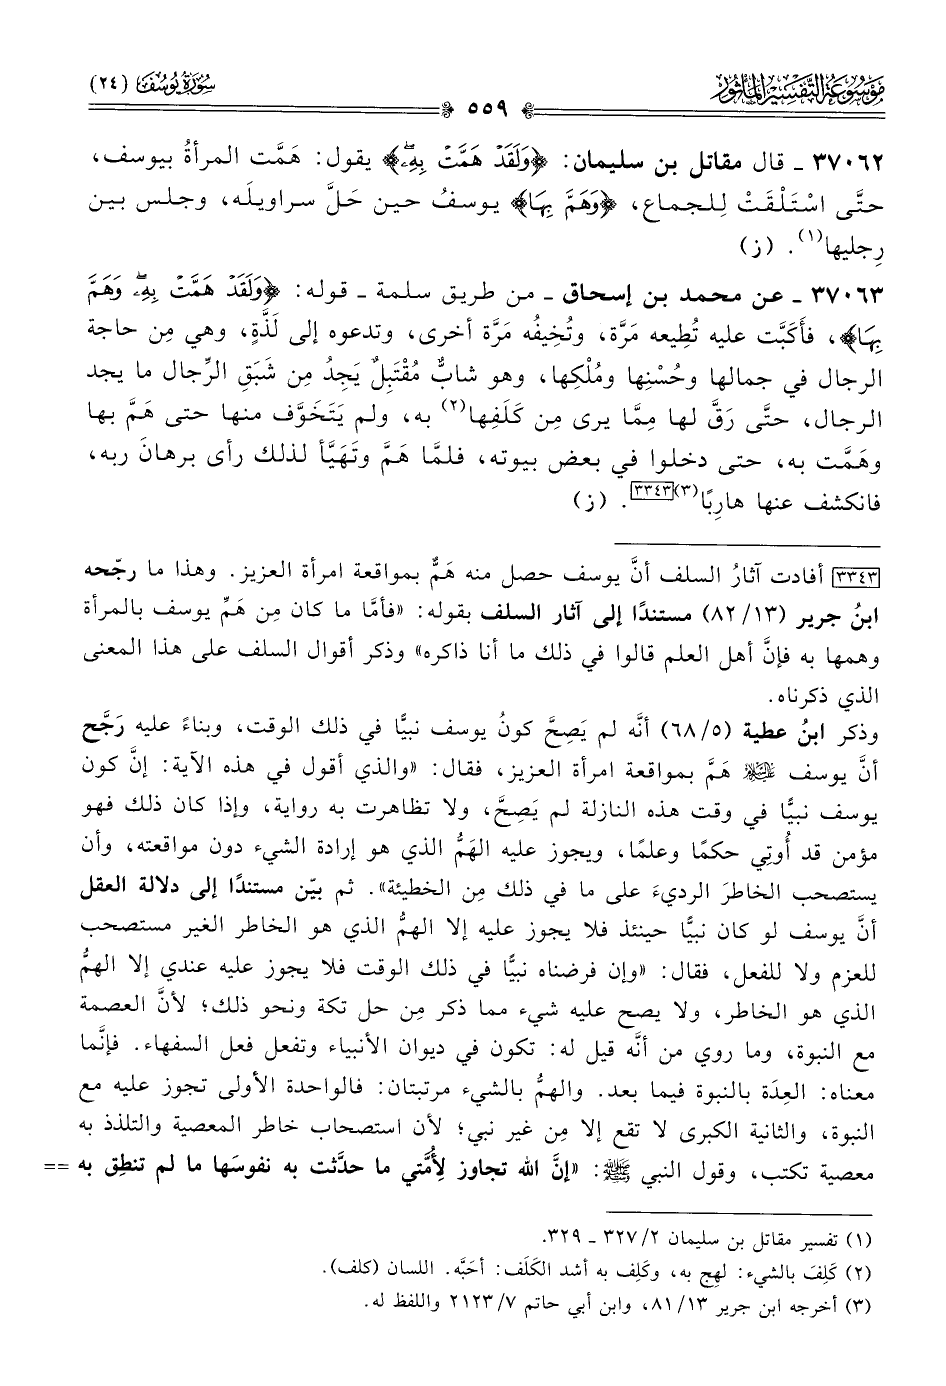 مَوْسُوعَةُ التَّفْسِيرِ المَأْثُورِ
سُورَةُ يُوسُفَ (٢٤)
٥٥٩
٣٧٠٦٢ ـ قال مقاتل بن سليمان: ﴿وَلَقَدْ هَمَّتْ بِهِۦۖ﴾ يقول: هَمَّت المرأةُ بيوسف،
حتَّى اسْتَلْقَتْ لِلجماع، ﴿وَهَمَّ بِهَا﴾ يوسفُ حين حَلَّ سراويلَه، وجلس بين
رِجليها(١). (ز)
٣٧٠٦٣ ـ عن محمد بن إسحاق ـ من طريق سلمة ـ قوله: ﴿وَلَقَدْ هَمَّتْ بِهِۦۖ وَهَمَّ
بِهَا﴾، فأَكبَّت عليه تُطِيعه مَرَّة، وتُخِيفُه مَرَّة أخرى، وتدعوه إلى لَذَّةٍ، وهي مِن حاجة
الرجال في جمالها وحُسْنِها ومُلْكِها، وهو شابٌّ مُقْتَبِلٌ يَجِدُ مِن شَبَقِ الرِّجال ما يجد
الرجال، حتَّى رَقَّ لها مِمَّا يرى مِن كَلَفِها(٢) به، ولم يَتَخَوَّف منها حتى هَمَّ بها
وهَمَّت به، حتى دخلوا في بعض بيوته، فلمَّا هَمَّ وتَهَيَّأ لذلك رأى برهانَ ربه،
فانكشف عنها هارِبًا(٣)[٣٣٤٣]. (ز)
[٣٣٤٣] أفادت آثارُ السلف أنَّ يوسف حصل منه هَمٌّ بمواقعة امرأة العزيز. وهذا ما رجّحه
ابنُ جرير (١٣/ ٨٢) مستندًا إلى آثار السلف بقوله: «فأمَّا ما كان مِن هَمِّ يوسف بالمرأة
وهمها به فإنَّ أهل العلم قالوا في ذلك ما أنا ذاكره» وذكر أقوال السلف على هذا المعنى
الذي ذكرناه.
وذكر ابنُ عطية (٥/ ٦٨) أنَّه لم يَصِحَّ كونُ يوسف نبيًّا في ذلك الوقت، وبناءً عليه رَجَّح
أنَّ يوسف ﷺ هَمَّ بمواقعة امرأة العزيز، فقال: «والذي أقول في هذه الآية: إنَّ كون
يوسف نبيًّا في وقت هذه النازلة لم يَصِحَّ، ولا تظاهرت به رواية، وإذا كان ذلك فهو
مؤمن قد أُوتِي حكمًا وعلمًا، ويجوز عليه الهَمُّ الذي هو إرادة الشيء دون مواقعته، وأن
يستصحب الخاطرَ الرديءَ على ما في ذلك مِن الخطيئة». ثم بيّن مستندًا إلى دلالة العقل
أنَّ يوسف لو كان نبيًّا حينئذ فلا يجوز عليه إلا الهمُّ الذي هو الخاطر الغير مستصحب
للعزم ولا للفعل، فقال: «وإن فرضناه نبيًّا في ذلك الوقت فلا يجوز عليه عندي إلا الهمُّ
الذي هو الخاطر، ولا يصح عليه شيء مما ذكر مِن حل تكة ونحو ذلك؛ لأنَّ العصمة
مع النبوة، وما روي من أنَّه قيل له: تكون في ديوان الأنبياء وتفعل فعل السفهاء. فإنَّما
معناه: العِدَة بالنبوة فيما بعد. والهمُّ بالشيء مرتبتان: فالواحدة الأولى تجوز عليه مع
النبوة، والثانية الكبرى لا تقع إلا مِن غير نبي؛ لأن استصحاب خاطر المعصية والتلذذ به
معصية تكتب، وقول النبي ﷺ: «إنَّ الله تجاوز لِأُمَّتي ما حدَّثت به نفوسَها ما لم تنطِق به ==
(١) تفسير مقاتل بن سليمان ٢/ ٣٢٧ ـ ٣٢٩.
(٢) كَلِفَ بالشيء: لهِج به، وكَلِف به أشد الكَلَف: أحَبَّه. اللسان (كلف).
(٣) أخرجه ابن جرير ١٣/ ٨١، وابن أبي حاتم ٧/ ٢١٢٣ واللفظ له.